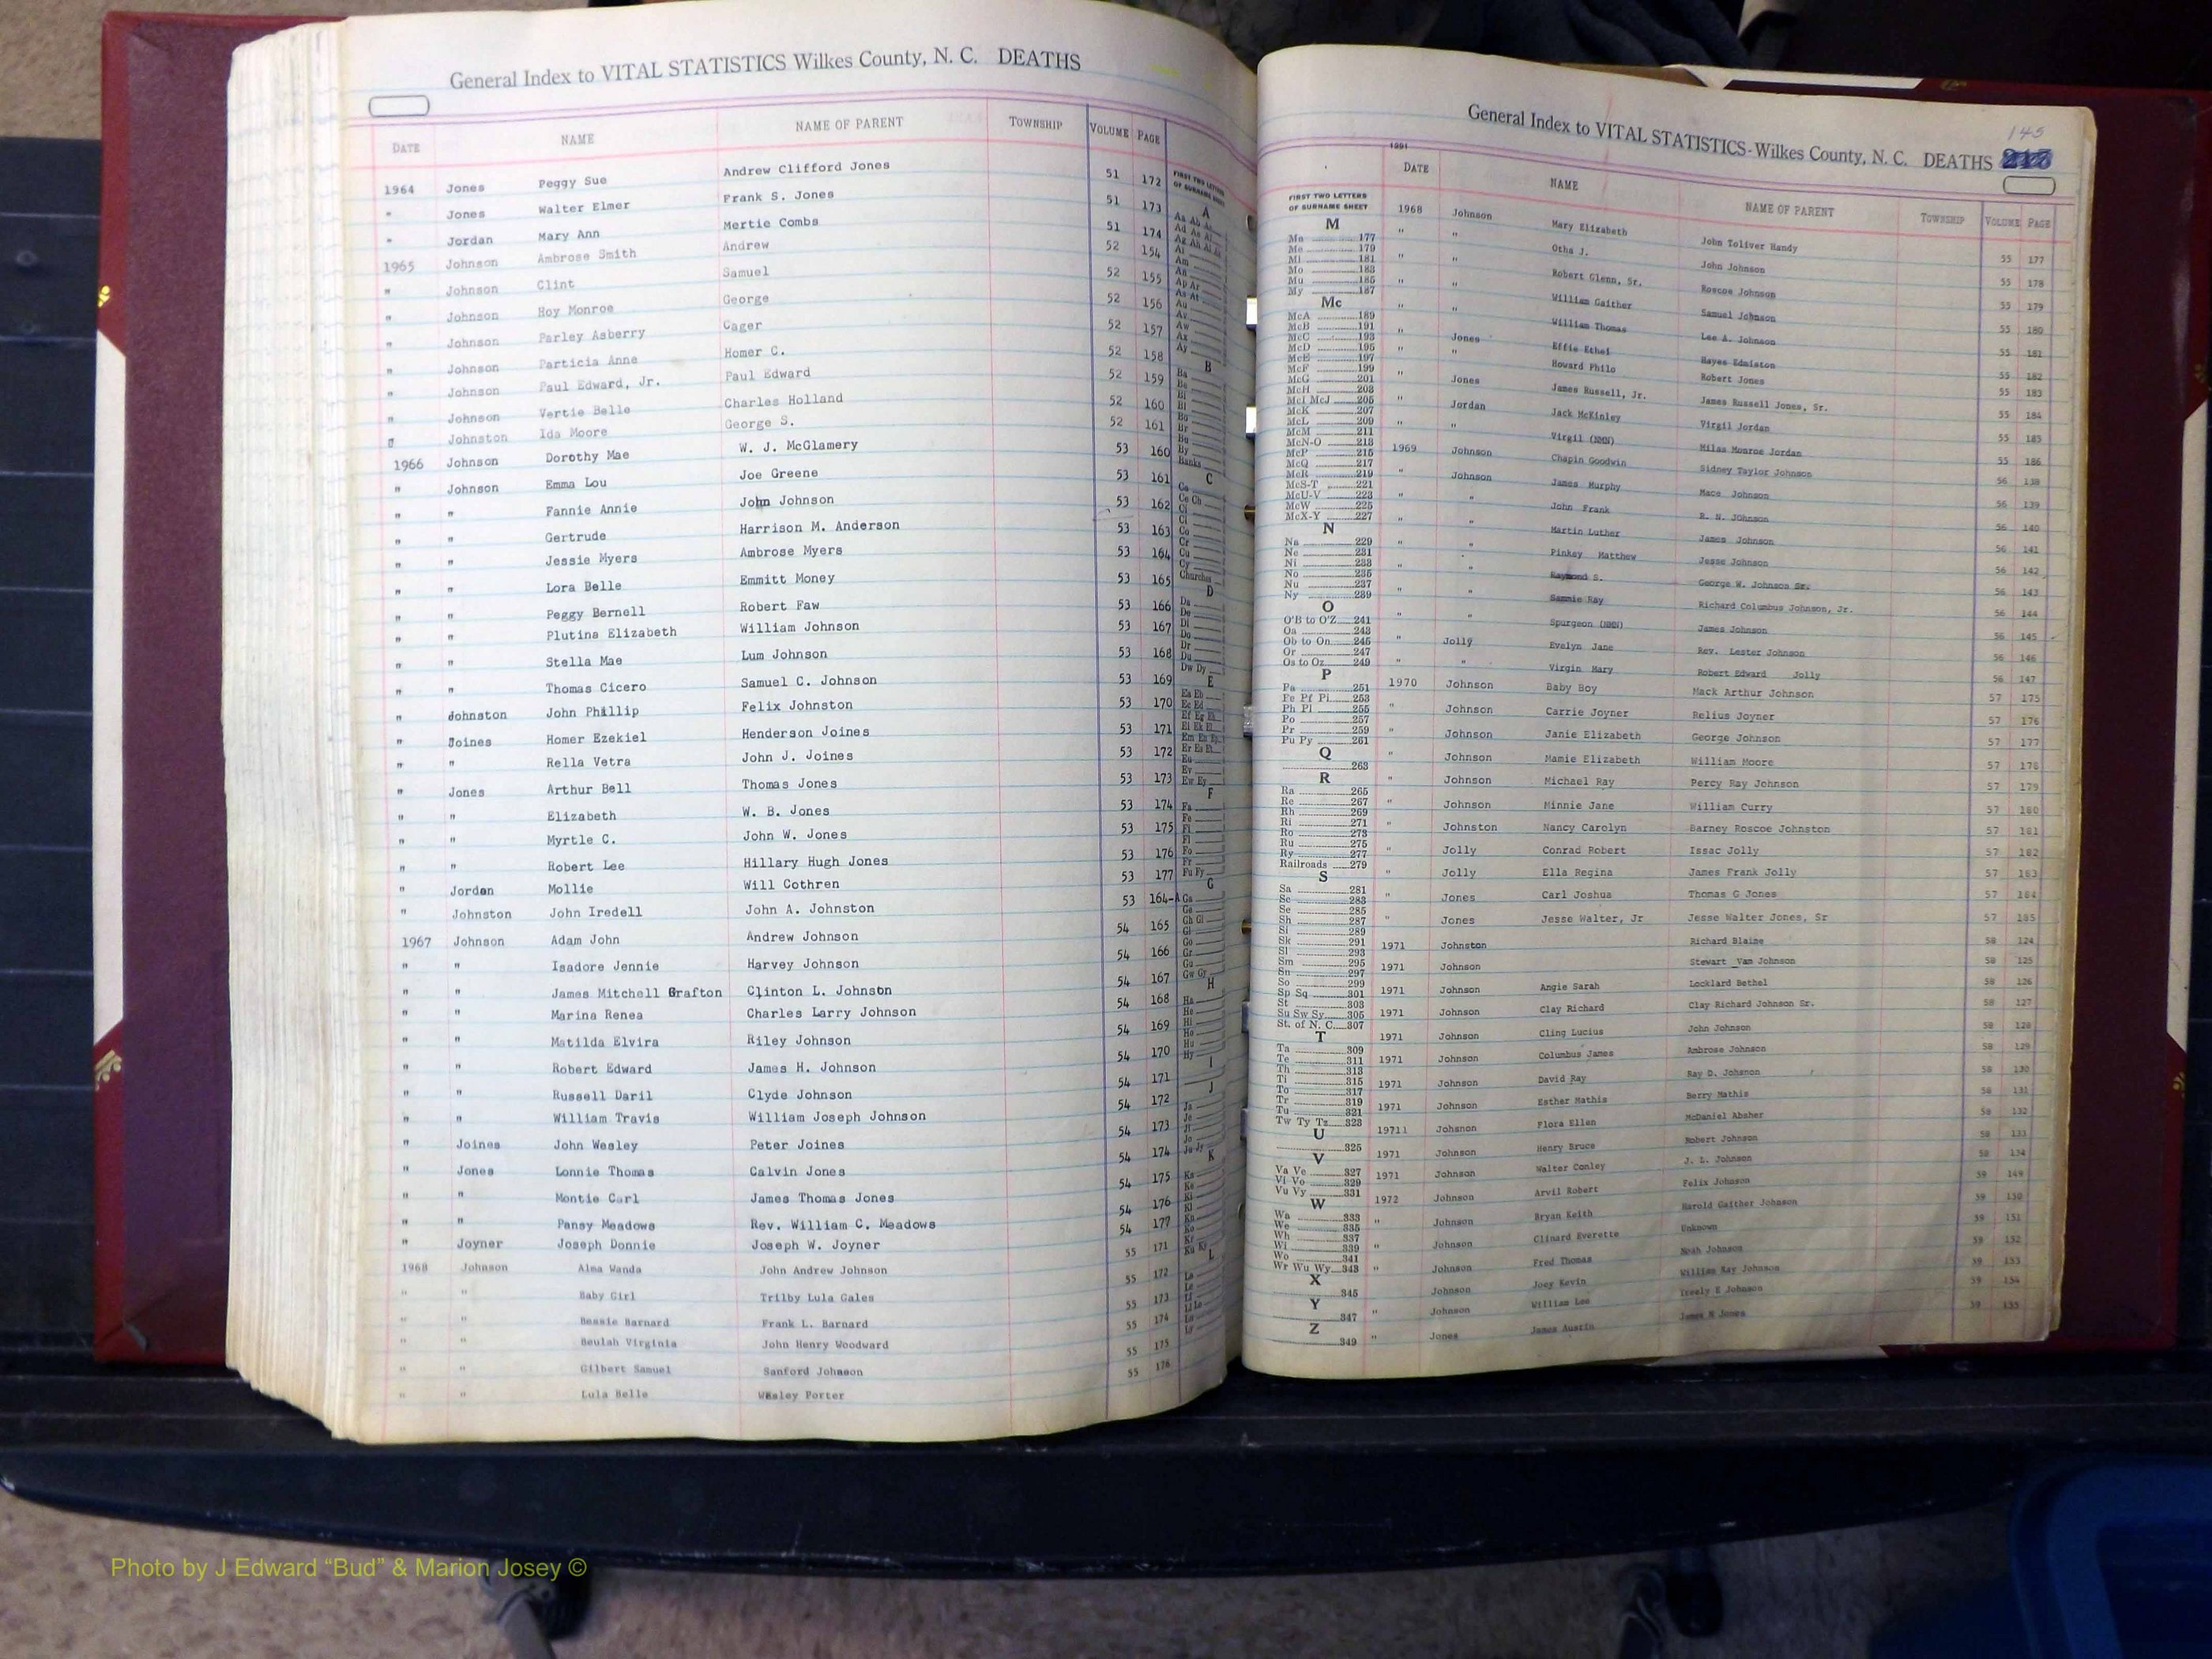 General Index to VITAL STATISTICS Wilkes County, N. C. DEATHS
DATE NAME NAME OF PARENT TOWNSHIP VOLUME PAGE
1964 Jones Peggy Sue Andrew Clifford Jones 51 172
" Jones Walter Elmer Frank S. Jones 51 173
" Jordan Mary Ann Mertie Combs 51 174
1965 Johnson Ambrose Smith Andrew 52 154
" Johnson Clint Samuel 52 155
" Johnson Hoy Monroe George 52 156
" Johnson Parley Asberry Cager 52 157
" Johnson Particia Anne Homer C. 52 158
" Johnson Paul Edward, Jr. Paul Edward 52 159
" Johnson Vertie Belle Charles Holland 52 160
" Johnston Ida Moore George S. 52 161
1966 Johnson Dorothy Mae W. J. McGlamery 53 160
" Johnson Emma Lou Joe Greene 53 161
" " Fannie Annie John Johnson 53 162
" " Gertrude Harrison M. Anderson 53 163
" " Jessie Myers Ambrose Myers 53 164
" " Lora Belle Emmitt Money 53 165
" " Peggy Bernell Robert Faw 53 166
" " Plutina Elizabeth William Johnson 53 167
" " Stella Mae Lum Johnson 53 168
" " Thomas Cicero Samuel C. Johnson 53 169
" Johnston John Phillip Felix Johnston 53 170
" Joines Homer Ezekiel Henderson Joines 53 171
" " Rella Vetra John J. Joines 53 172
" Jones Arthur Bell Thomas Jones 53 173
" " Elizabeth W. B. Jones 53 174
" " Myrtle C. John W. Jones 53 175
" " Robert Lee Hillary Hugh Jones 53 176
" Jordan Mollie Will Cothren 53 177
" Johnston John Iredell John A. Johnston 53 164-A
1967 Johnson Adam John Andrew Johnson 54 165
" " Isadore Jennie Harvey Johnson 54 166
" " James Mitchell Grafton Clinton L. Johnson 54 167
" " Marina Renea Charles Larry Johnson 54 168
" " Matilda Elvira Riley Johnson 54 169
" " Robert Edward James H. Johnson 54 170
" " Russell Daril Clyde Johnson 54 171
" " William Travis William Joseph Johnson 54 172
" Joines John Wesley Peter Joines 54 173
" Jones Lonnie Thomas Calvin Jones 54 174
" " Montie Carl James Thomas Jones 54 175
" " Pansy Meadows Rev. William C. Meadows 54 176
" Joyner Joseph Donnie Joseph W. Joyner 54 177
1968 Johnson Alma Wanda John Andrew Johnson 55 171
" " Baby Girl Trilby Lula Gales 55 172
" " Bessie Barnard Frank L. Barnard 55 173
" " Beulah Virginia John Henry Woodward 55 174
" " Gilbert Samuel Sanford Johnson 55 175
" " Lula Belle Wesley Porter 55 176
FIRST TWO LETTERS
OF SURNAME SHEET
A
B
C
D
E
F
G
H
I
J
K
L
145
General Index to VITAL STATISTICS-Wilkes County, N. C. DEATHS
DATE NAME NAME OF PARENT TOWNSHIP VOLUME PAGE
1968 Johnson Mary Elizabeth John Toliver Handy 55 177
" " Otha J. John Johnson 55 178
" " Robert Glenn, Sr. Roscoe Johnson 55 179
" " William Gaither Samuel Johnson 55 180
" " William Thomas Lee A. Johnson 55 181
" Jones Effie Ethel Hayes Edmiston 55 182
" " Howard Philo Robert Jones 55 183
" Jones James Russell, Jr. James Russell Jones, Sr. 55 184
" Jordan Jack McKinley Virgil Jordan 55 185
" " Virgil (NMN) Milas Monroe Jordan 55 186
1969 Johnson Chapin Goodwin Sidney Taylor Johnson 56 138
" Johnson James Murphy Mace Johnson 56 139
" " John Frank R. N. Johnson 56 140
" " Martin Luther James Johnson 56 141
" " Pinkey Matthew Jesse Johnson 56 142
" " Raymond S. George W. Johnson Sr. 56 143
" " Sammie Ray Richard Columbus Johnson, Jr. 56 144
" " Spurgeon (NMN) James Johnson 56 145
" Jolly Evelyn Jane Rev. Lester Johnson 56 146
" " Virgin Mary Robert Edward Jolly 56 147
1970 Johnson Baby Boy Mack Arthur Johnson 57 175
" Johnson Carrie Joyner Relius Joyner 57 176
" Johnson Janie Elizabeth George Johnson 57 177
" Johnson Mamie Elizabeth William Moore 57 178
" Johnson Michael Ray Percy Ray Johnson 57 179
" Johnson Minnie Jane William Curry 57 180
" Johnston Nancy Carolyn Barney Roscoe Johnston 57 181
" Jolly Conrad Robert Issac Jolly 57 182
" Jolly Ella Regina James Frank Jolly 57 183
" Jones Carl Joshua Thomas G Jones 57 184
" Jones Jesse Walter, Jr Jesse Walter Jones, Sr 57 185
1971 Johnston Richard Blaine 58 124
1971 Johnson Stewart Vam Johnson 58 125
1971 Johnson Angie Sarah Locklard Bethel 58 126
1971 Johnson Clay Richard Clay Richard Johnson Sr. 58 127
1971 Johnson Cling Lucius John Johnson 58 128
1971 Johnson Columbus James Ambrose Johnson 58 129
1971 Johnson David Ray Ray D. Johsnon 58 130
1971 Johnson Esther Mathis Berry Mathis 58 131
19711 Johsnon Flora Ellen McDaniel Absher 58 132
1971 Johnson Henry Bruce Robert Johnson 58 133
1971 Johnson Walter Conley J. L. Johnson 58 134
1972 Johnson Arvil Robert Felix Johnson 59 149
" Johnson Bryan Keith Harold Gaither Johnson 59 150
" Johnson Clinard Everette Unknown 59 151
" Johnson Fred Thomas Noah Johnson 59 152
Johnson Joey Kevin William Ray Johnson 59 153
" Johnson William Lee E Johnson 59 154
" Jones James Austin James N Jones 59 155
1991
FIRST TWO LETTERS
OF SURNAME SHEET
M
Ma 177
Me 179
Mi 181
Mo 183
Mu 185
My 187
Mc
McA 189
McB 191
McC 193
McD 195
McE 197
McF 199
McG 201
McH 203
McI McJ 205
McK 207
McL 209
McM 211
McN-O 213
McP 215
McQ 217
McR 219
McS-T 221
McU-V 223
McW 225
McX-Y 227
N
Na 229
Ne 231
Ni 233
No 235
Nu 237
Ny 239
O
O'B to O'Z 241
Oa 243
Ob to On 245
Or 247
Os to Oz 249
P
Pa 251
Pe Pf Pi 253
Ph Pl 255
Po 257
Pr 259
Pu Py 261
Q
263
R
Ra 265
Re 267
Rh 269
Ri 271
Ro 273
Ru 275
Ry 277
Railroads 279
S
Sa 281
Sc 283
Se 285
Sh 287
Si 289
Sk 291
Sl 293
Sm 295
Sn 297
So 299
Sp Sq 301
St 303
Su Sw Sy 305
St. of N. C. 307
T
Ta 309
Te 311
Th 313
Ti 315
To 317
Tr 319
Tu 321
Tw Ty Tz 323
U
325
V
Va Ve 327
Vi Vo 329
Vu Vy 331
W
Wa 333
We 335
Wh 337
Wi 339
Wo 341
Wr Wu Wy 343
X
345
Y
347
Z
349
Photo by J Edward “Bud” & Marion Josey ©